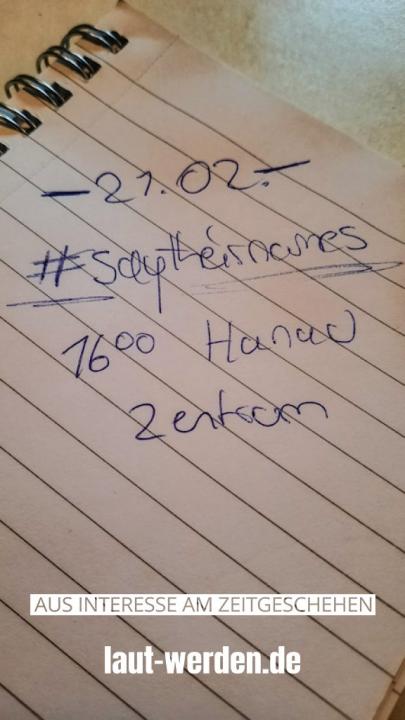 - 21.02. -
#saytheirnames
16⁰⁰ Hanau
Zentrum
AUS INTERESSE AM ZEITGESCHEHEN
laut-werden.de